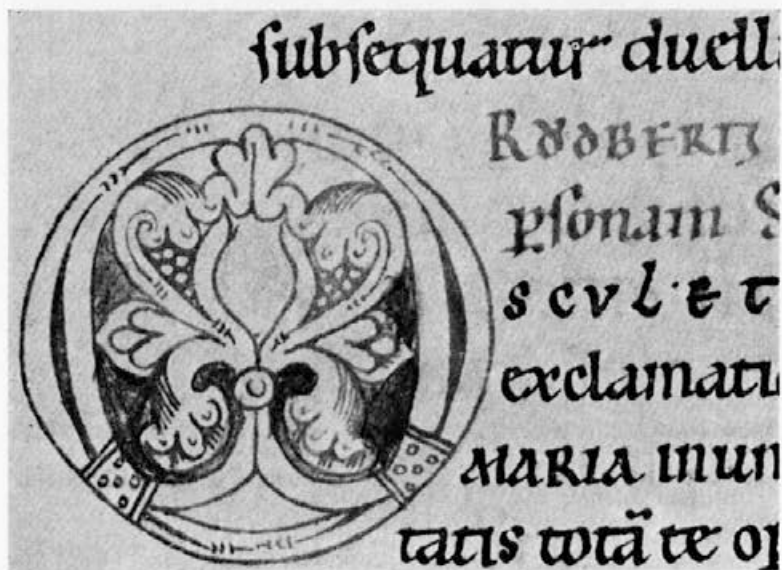 subsequatur duell
RODBERTꝫ
ꝑsonam S
O SCVL· ET
exclamati
MARIA IN un
tatis totā te op